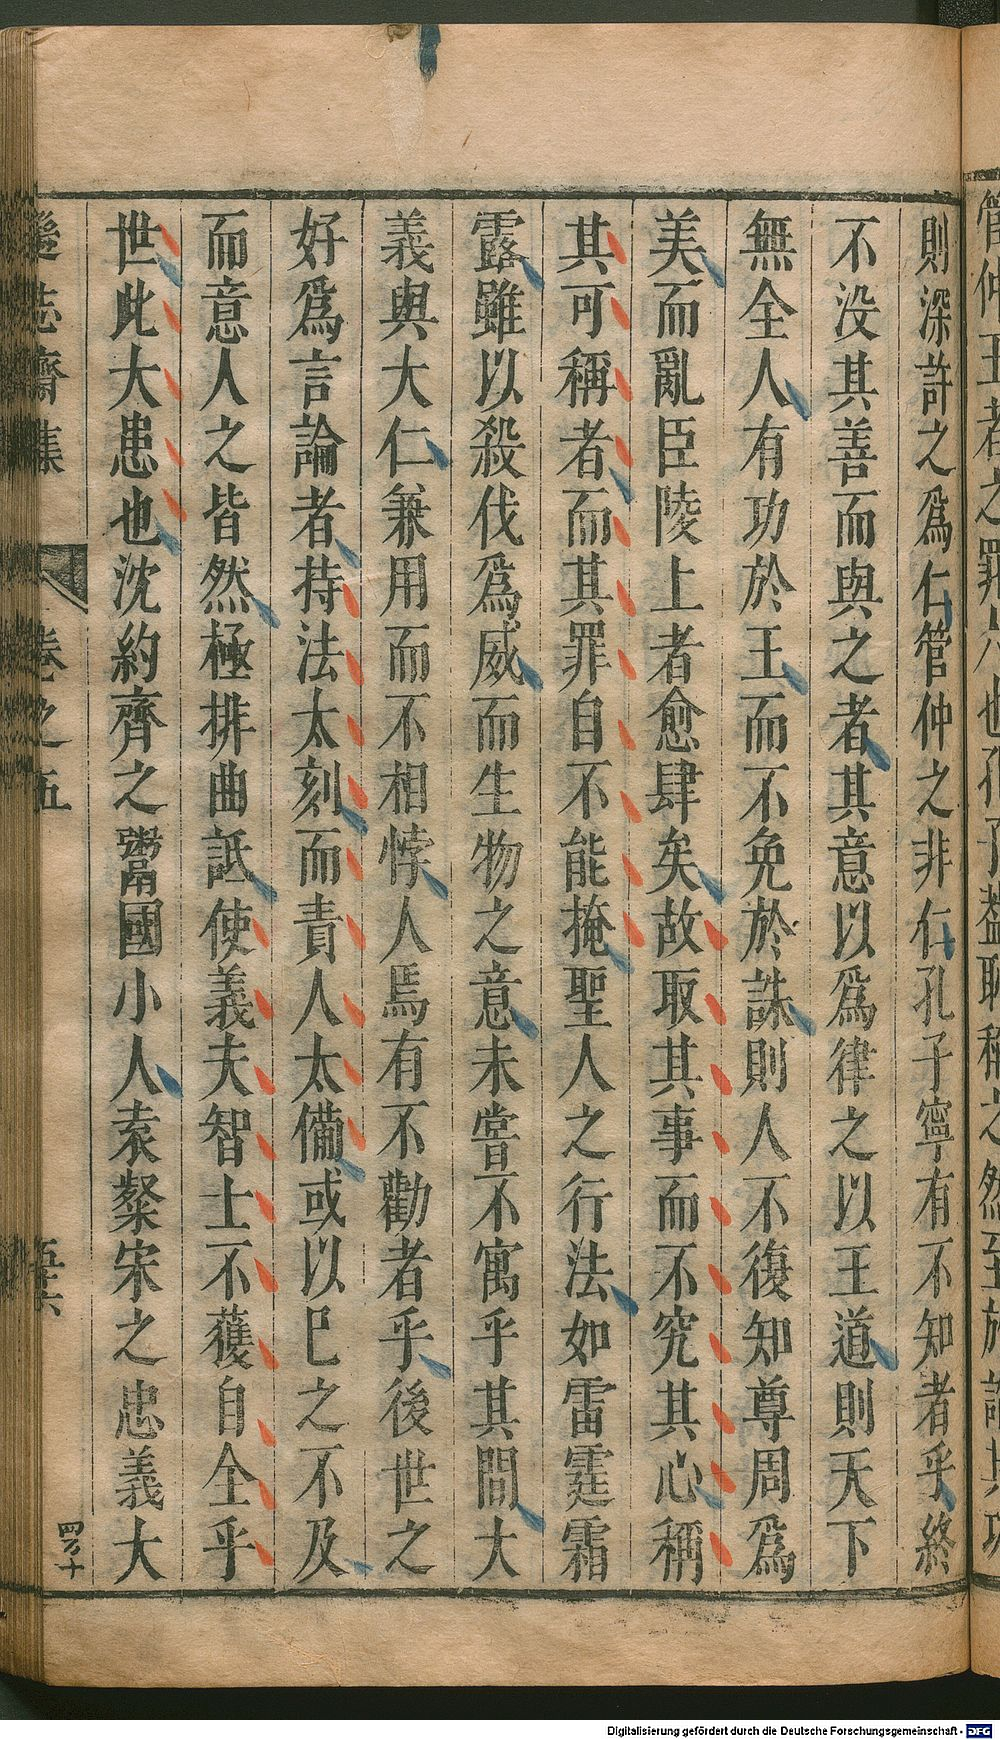 則深許之爲仁管仲之非仁孔子寧有不知者乎終
不没其善而與之者其意以爲律之以王道則天下
無全人有功於王而不免於誅則人不復知尊周爲
美而亂臣陵上者愈肆矣故取其事而不究其心稱
其可稱者而其罪自不能掩聖人之行法如雷霆霜
露雖以殺伐爲威而生物之意未嘗不寓乎其間大
義與大仁兼用而不相悖人焉有不勸者乎後世之
好爲言論者持法太刻而責人太備或以己之不及
而意人之皆然極排曲詆使義夫智士不獲自全乎
世此大患也沈約齊之鬻國小人袁粲宋之忠義大
遜志齋集 卷之五 五十六
Digitalisierung gefördert durch die Deutsche Forschungsgemeinschaft - DFG